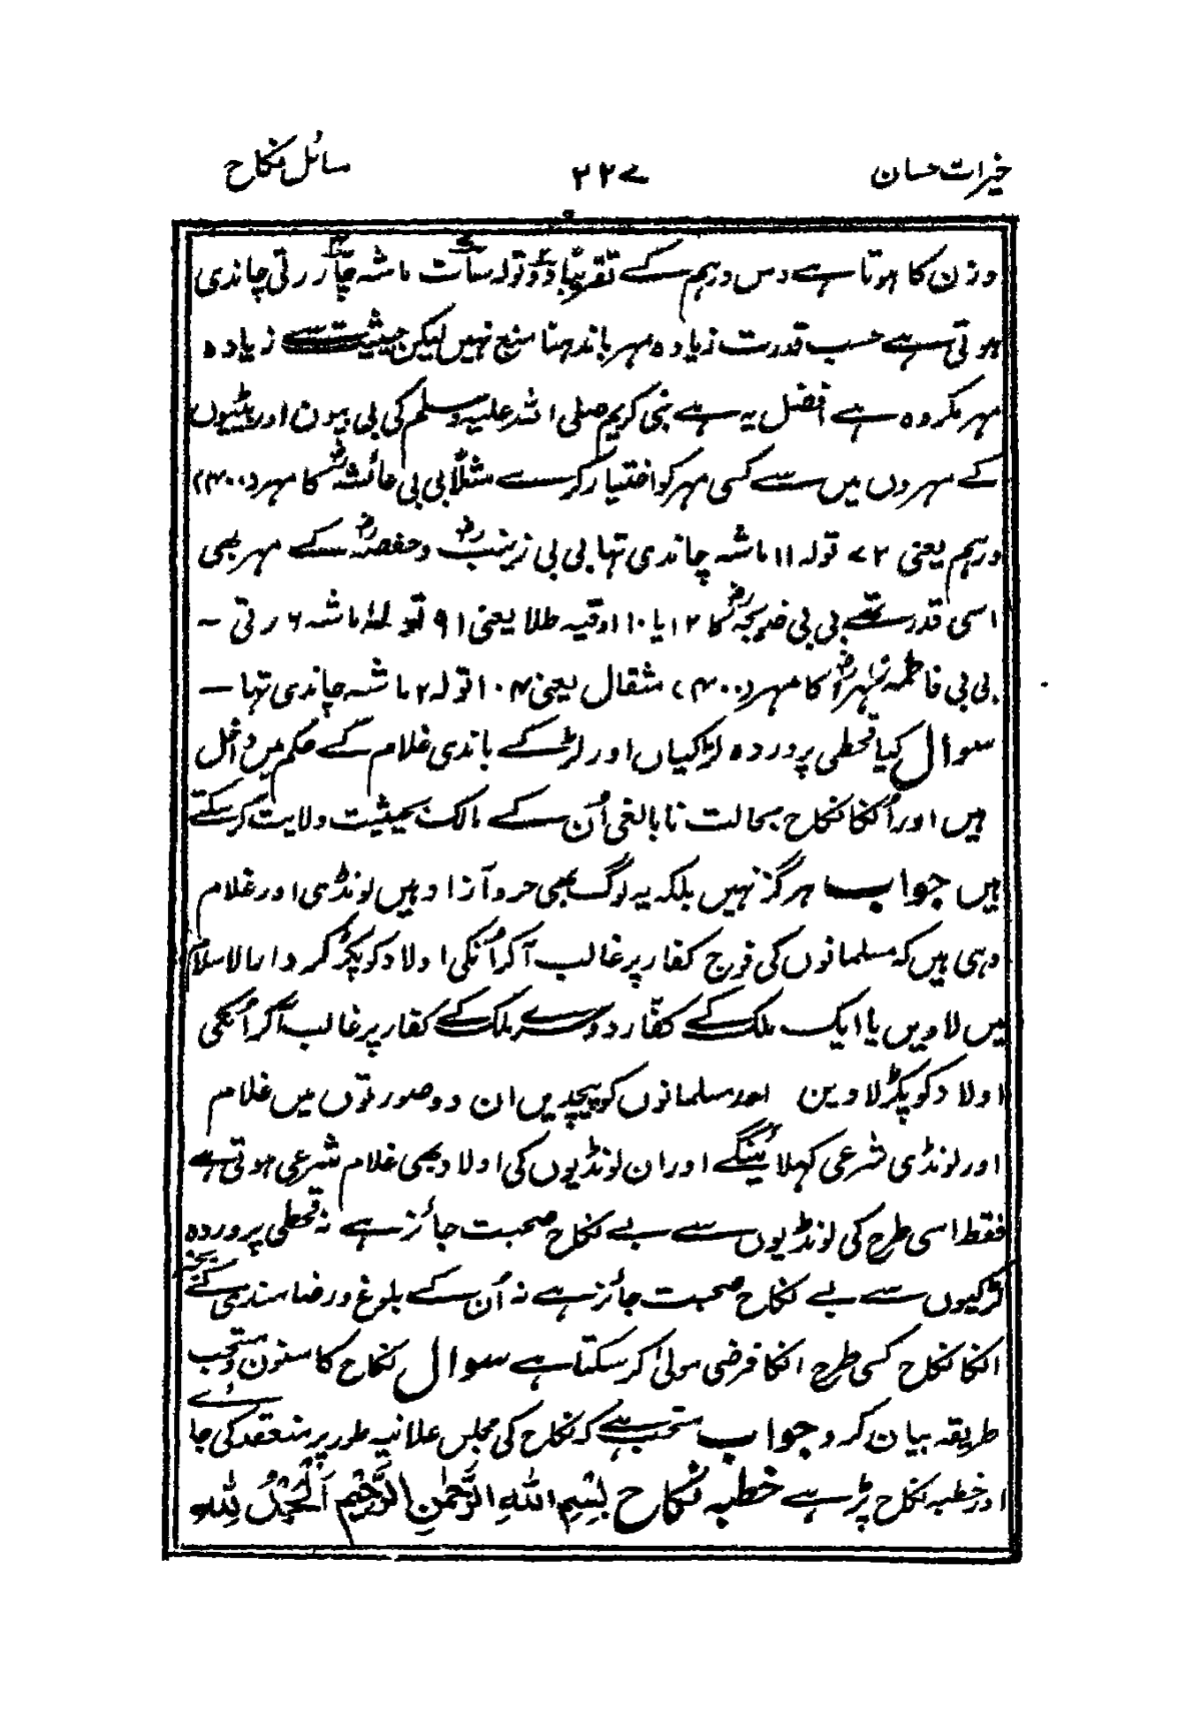 خیرات حسان ۲۲۷ مسائل نکاح
وزن کا ہوتا ہے دس درہم کے تقریباً دو تولہ سات ماشہ چار رتی چاندی
ہوتی ہے حسب قدرت زیادہ مہر باندھنا منع نہیں لیکن حیثیت سے زیادہ
مہر مکروہ ہے افضل یہ ہے نبی کریم صلی اللہ علیہ وسلم کی بی بیون اور بیٹیوں
کے مہروں میں سے کسی مہر کو اختیار کرے مثلاً بی بی عائشہؓ کا مہر (۴۰۰)
درہم یعنی ۷۲ تولہ ۱۱ ماشہ چاندی تھا بی بی زینبؓ و حفصہؓ کے مہر بھی
اسی قدر تھے بی بی خدیجہؓ کا ۱۲ یا ۱۰ اوقیہ طلا یعنی ۹۱ تولہ ماشہ ۶ رتی ۔
بی بی فاطمہ زہراؓ کا مہر (۴۰۰) مثقال یعنی ۱۰۴ تولہ ۲ ماشہ چاندی تہا ۔
سوال کیا قحطی پروردہ لڑکیاں اور لڑکے باندی غلام کے حکم میں داخل
ہیں اور اُنکا نکاح بحالت نابالغی اُن کے مالک بحیثیت ولایت کرسکتے
ہیں جواب ہرگز نہیں بلکہ یہ لوگ بھی حر و آزاد ہیں لونڈی اور غلام
وہی ہیں کہ مسلمانوں کی فوج کفار پر غالب آکر اُنکی اولاد کو پکڑ کر دارالاسلام
میں لاویں یا ایک ملک کے کفّار دوسرے ملک کے کفار پر غالب آکر اُنکی
اولاد کو پکڑ لاوین اور مسلمانوں کو بیچدیں ان دو صورتوں میں غلام
اور لونڈی شرعی کہلائینگے اور ان لونڈیوں کی اولاد بھی غلام شرعی ہوتی ہے
فقط اسی طرح کی لونڈیوں سے بے نکاح صحبت جائز ہے نہ قحطی پروردہ
لڑکیوں سے بے نکاح صحبت جائز ہے نہ اُن کے بلوغ و رضامندی کے بغیر
انکا نکاح کسی طرح انکا فرضی مولیٰ کرسکتا ہے سوال نکاح کا مسنون و مستحب
طریقہ بیان کرو جواب مستحب ہے کہ نکاح کی مجلس علانیہ طور پر منعقد کی جائے
اور خطبہ نکاح پڑہے خطبہ نکاح بِسْمِ اللّٰهِ الرَّحْمٰنِ الرَّحِيْمِ اَلْحَمْدُ لِلّٰهِ